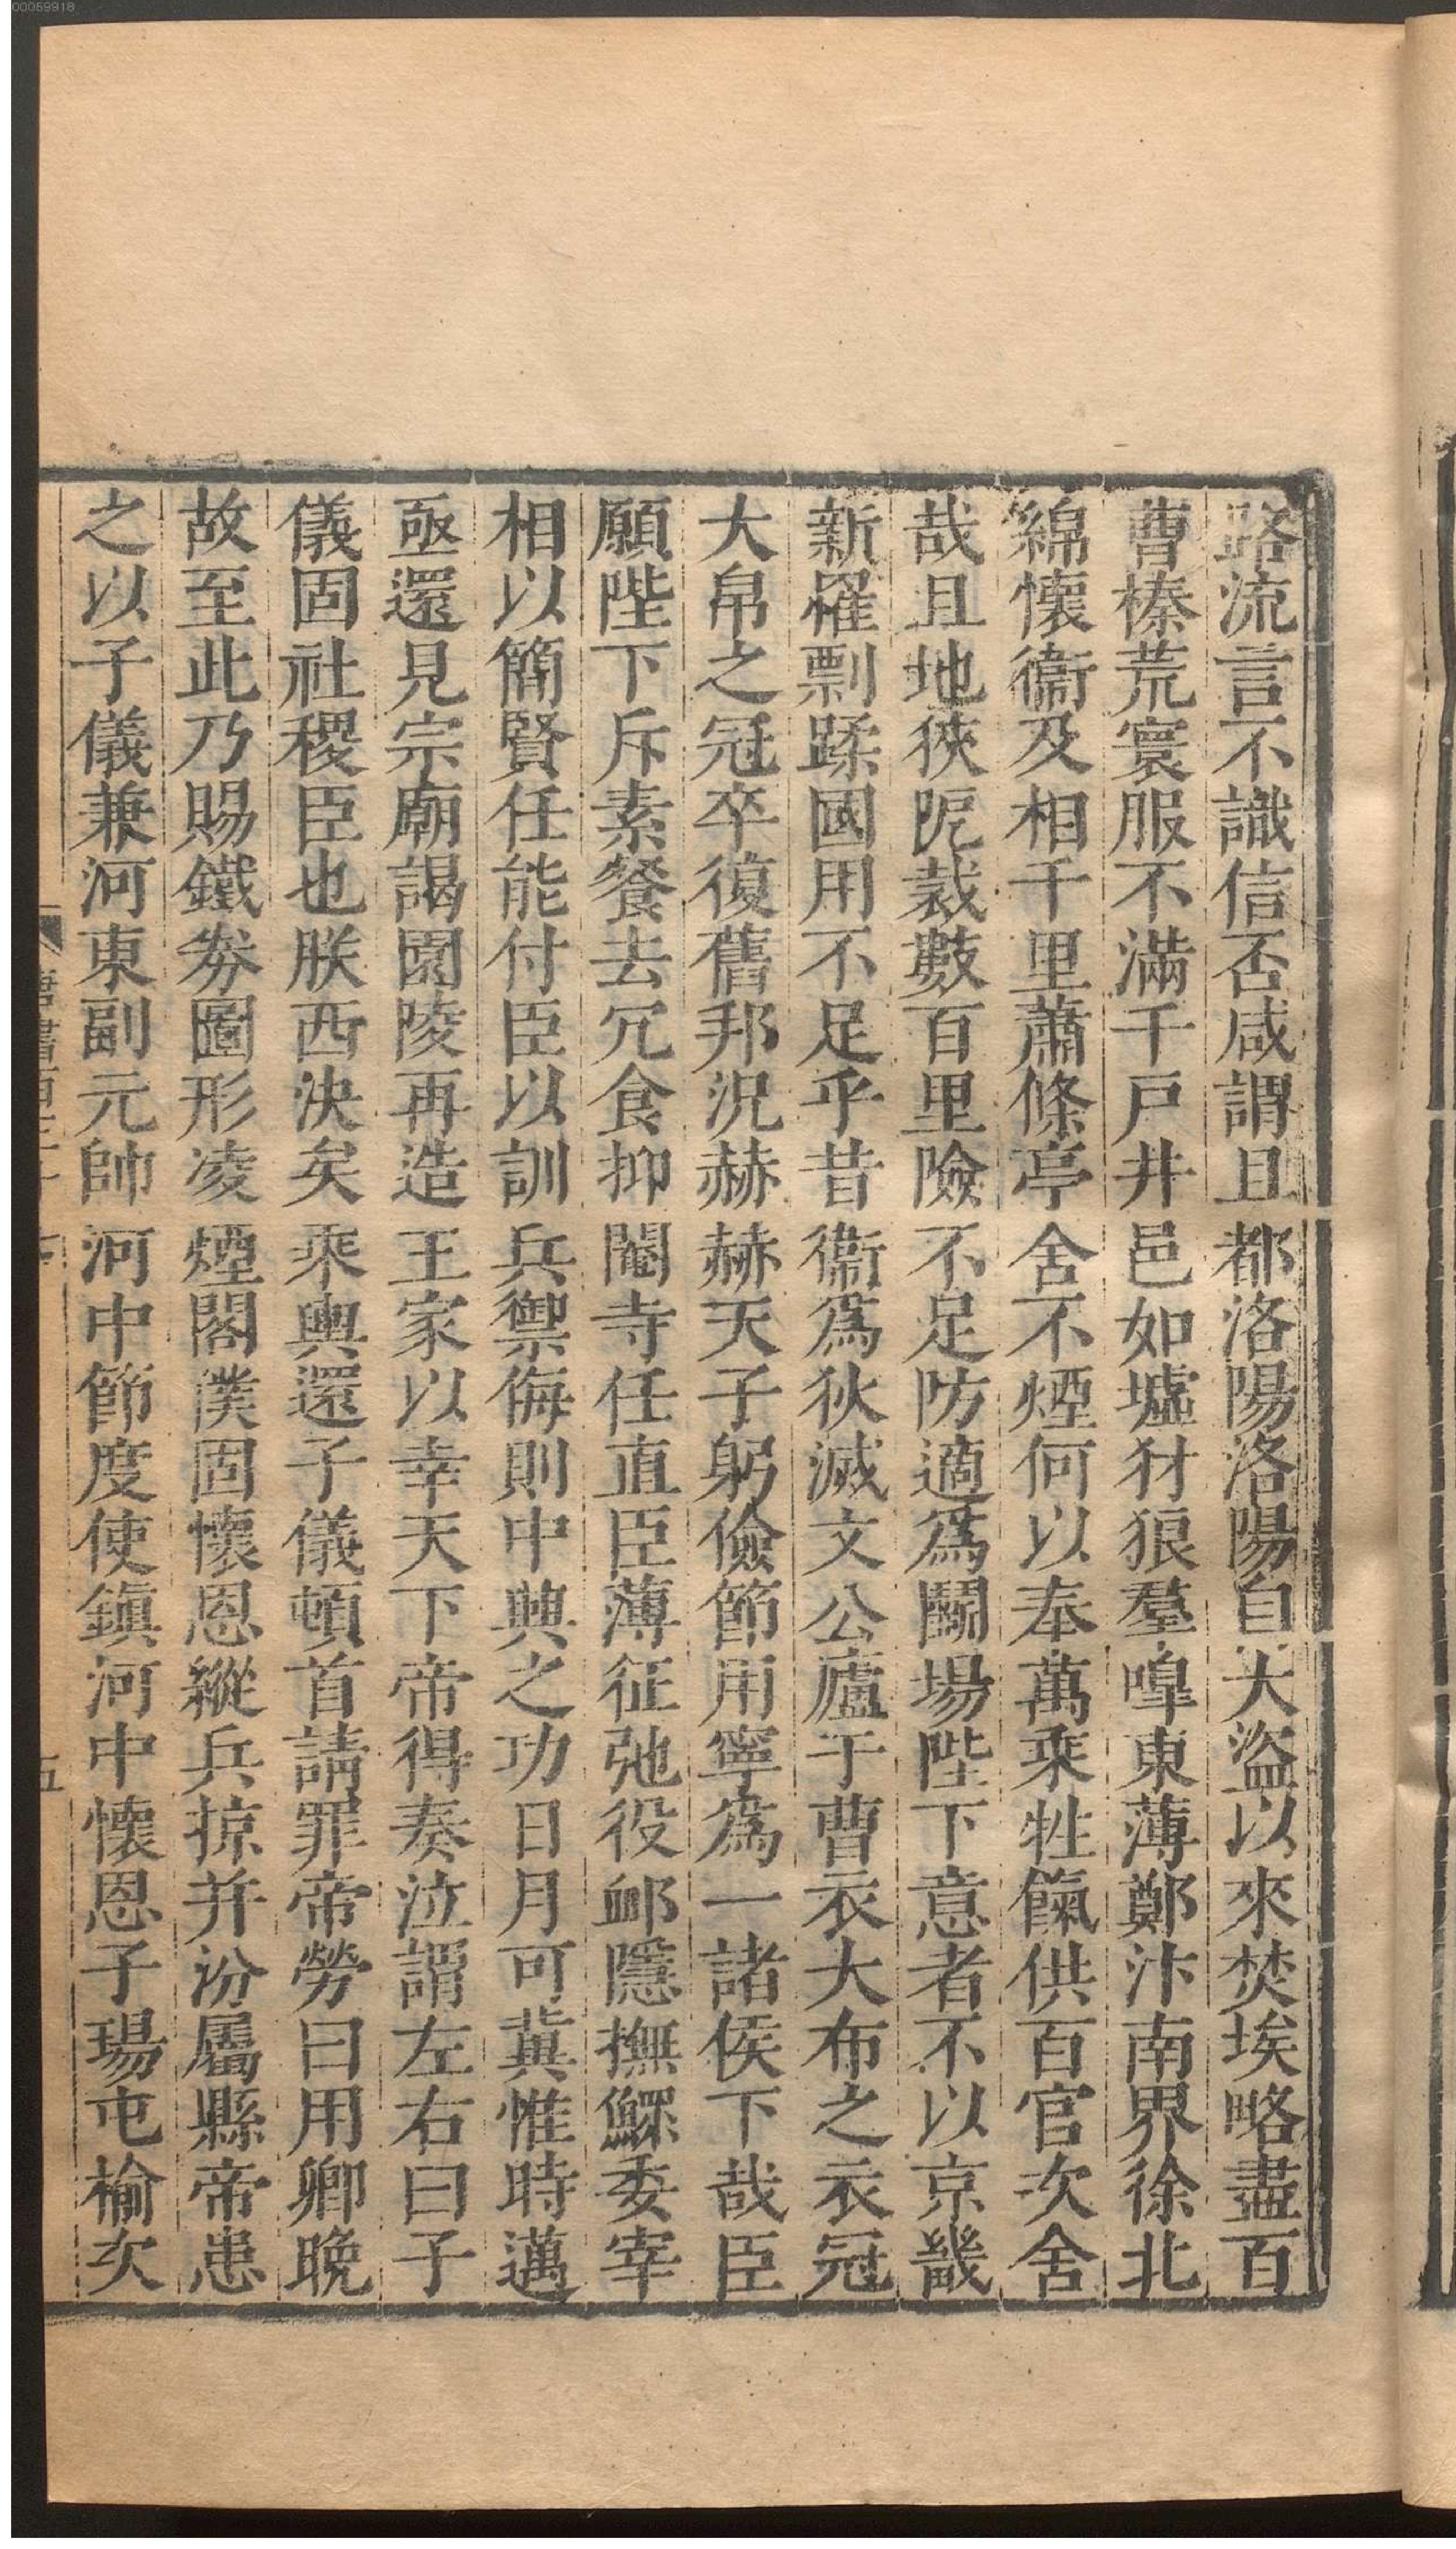 路流言不識信否咸謂且都洛陽洛陽自大盜以來焚埃略盡百
曹榛荒寰服不滿千戸井邑如墟犲狼羣嘷東薄鄭汴南界徐北
綿懷衞及相千里蕭條亭舍不煙何以奉萬乘牲餼供百官次舍
哉且地狹阨裁數百里險不足防適爲鬭場陛下意者不以京畿
新罹剽蹂國用不足乎昔衞爲狄滅文公廬于曹衣大布之衣冠
大帛之冠卒復舊邦況赫赫天子躬儉節用寧爲一諸侯下哉臣
願陛下斥素餐去冗食抑閹寺任直臣薄征弛役䘏隱撫鰥委宰
相以簡賢任能付臣以訓兵禦侮則中興之功日月可冀惟時邁
亟還見宗廟謁園陵再造王家以幸天下帝得奏泣謂左右曰子
儀固社稷臣也朕西決矣乘輿還子儀頓首請罪帝勞曰用卿晚
故至此乃賜鐵券圖形凌煙閣僕固懷恩縱兵掠并汾屬縣帝患
之以子儀兼河東副元帥河中節度使鎭河中懷恩子瑒屯榆次
五
00059918